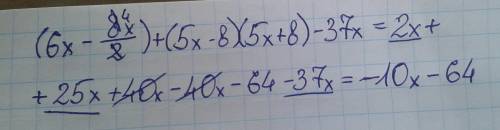 (6x - 8x/2) + (5x - 8)(5x + 8) - 37x = 2x +
+ 25x + 40x - 40x - 64 - 37x = -10x - 64